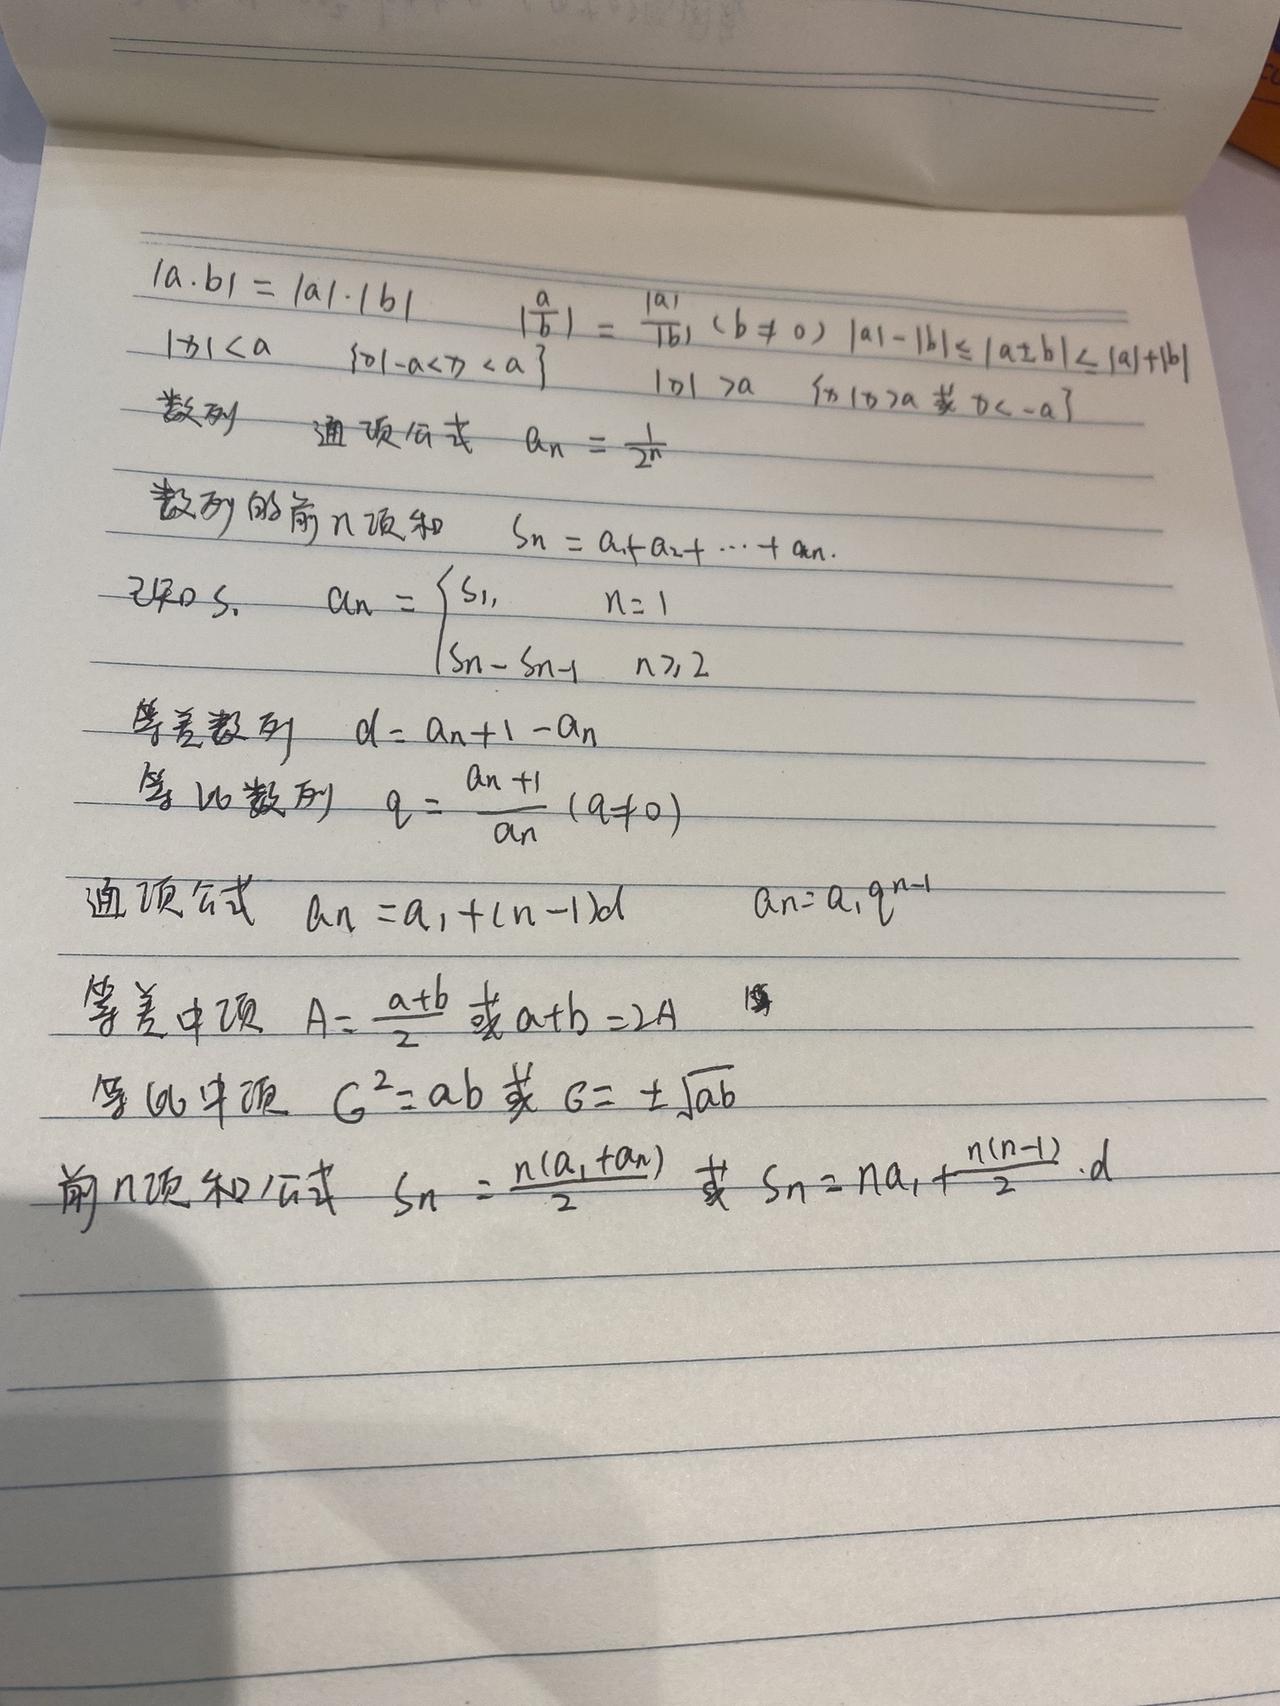 |a·b| = |a|·|b|  |a/b| = |a|/|b| (b≠0) |a|-|b|≤|a±b|≤|a|+|b|
|x|<a  {x|-a<x<a}  |x|>a  {x|x>a 或 x<-a}
数列  通项公式  an = 1/2ⁿ
数列的前n项和  Sn = a₁+a₂+…+an.
已知S.  an = { S1,  n=1
Sn-Sn-1  n≥2
等差数列  d = an+1-an
等比数列  q = an+1/an (q≠0)
通项公式  an = a₁+(n-1)d  an = a₁qⁿ⁻¹
等差中项  A = a+b/2 或 a+b=2A
等比中项  G²=ab 或 G=±√ab
前n项和公式  Sn = n(a₁+an)/2 或 Sn = na₁+n(n-1)/2·d